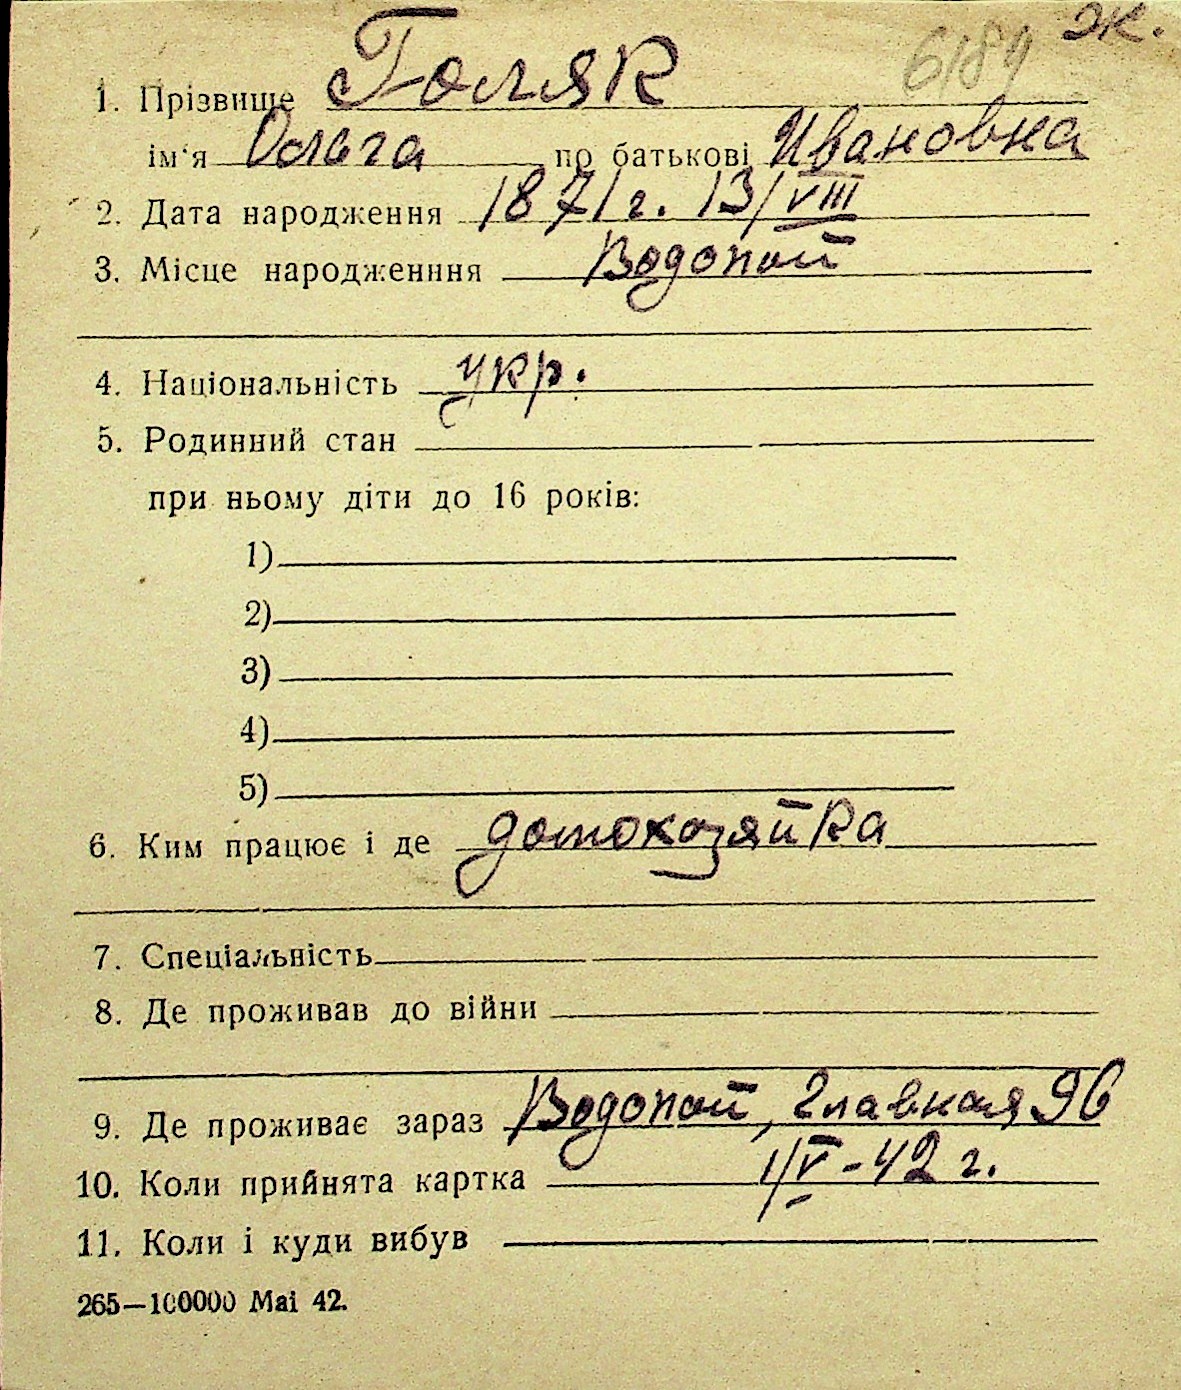 ж.
6189
1. Прізвище Голяк
ім'я Ольга по батькові Ивановна
2. Дата народження 1871 г. 13/VIII
3. Місце народженння Водопой
4. Національність укр.
5. Родинний стан
при ньому діти до 16 років:
1)
2)
3)
4)
5)
6. Ким працює і де домохозяйка
7. Спеціальність
8. Де проживав до війни
9. Де проживає зараз Водопой, Главная 96
10. Коли прийнята картка 1/V-42 г.
11. Коли і куди вибув
265—100000 Mai 42.